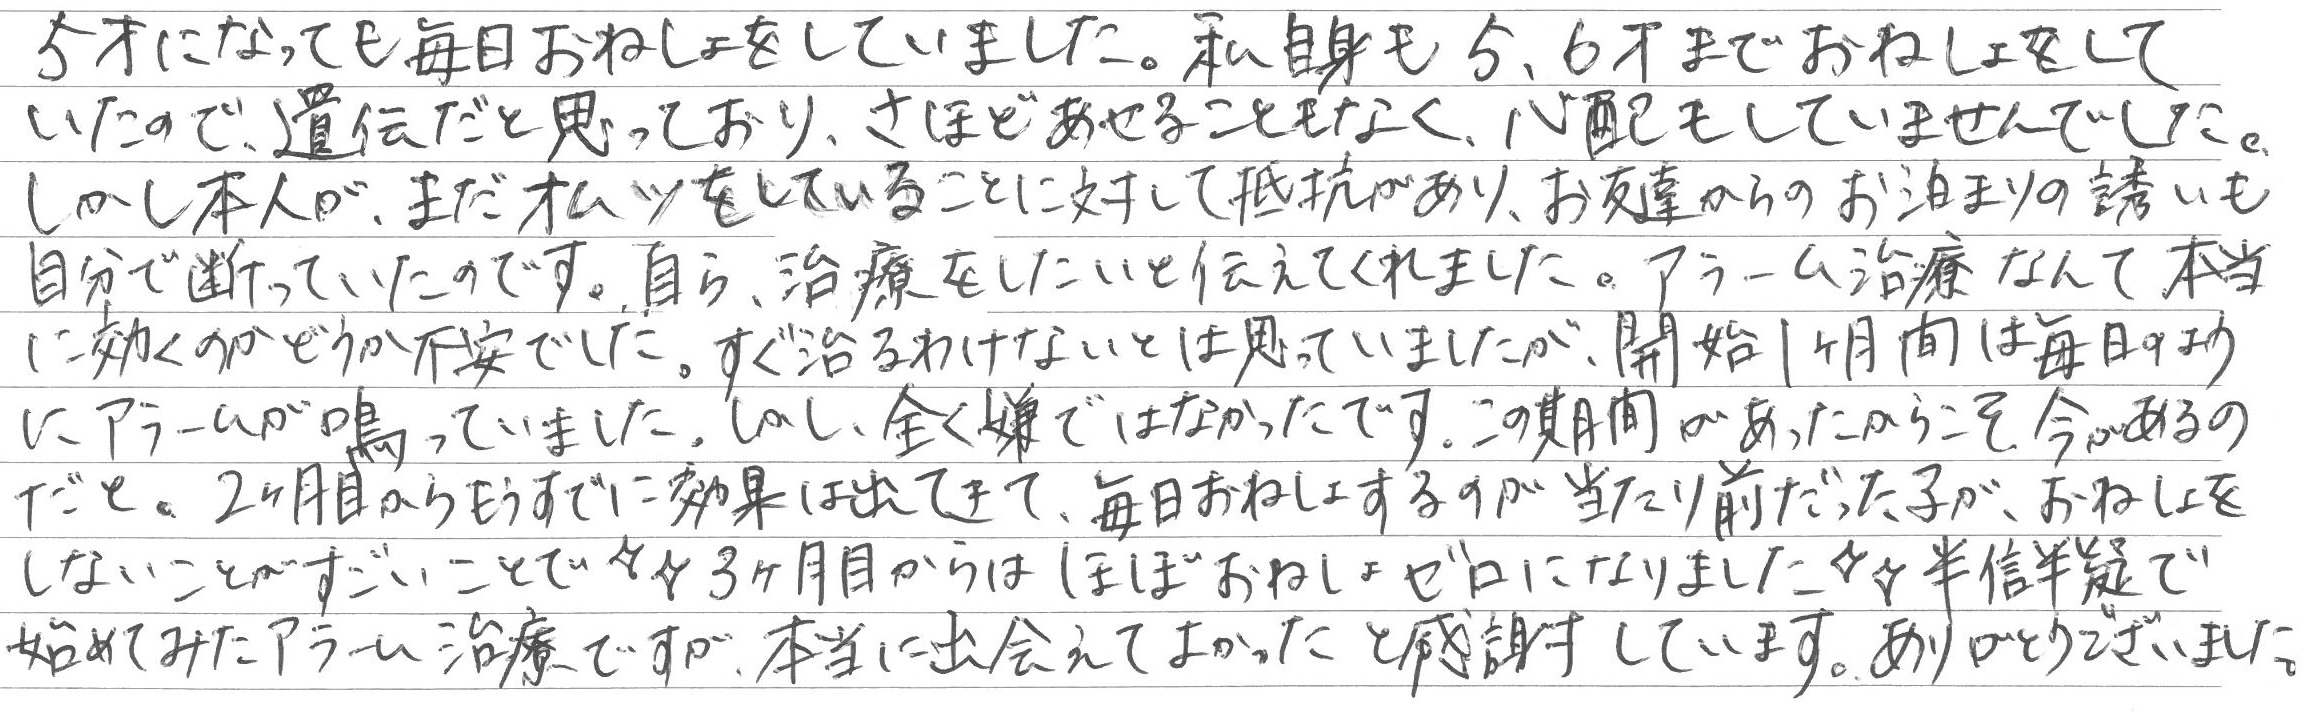 5才になっても毎日おねしょをしていました。私自身も5、6才までおねしょをして
いたので、遺伝だと思っており、さほどあせることもなく、心配もしていませんでした。
しかし本人が、まだオムツをしていることに対して抵抗があり、お友達からのお泊まりの誘いも
自分で断っていたのです。自ら、治療をしたいと伝えてくれました。アラーム治療なんて本当
に効くのかどうか不安でした。すぐ治るわけないとは思っていましたが、開始1ヶ月間は毎日のよう
にアラームが鳴っていました。しかし、全く嫌ではなかったです。この期間があったからこそ今があるの
だと。2ヶ月目からもうすでに効果は出てきて、毎日おねしょするのが当たり前だった子が、おねしょを
しないことがすごいことで☆☆3ヶ月目からはほぼおねしょゼロになりました☆☆半信半疑で
始めてみたアラーム治療ですが、本当に出会えてよかったと感謝しています。ありがとうございました。